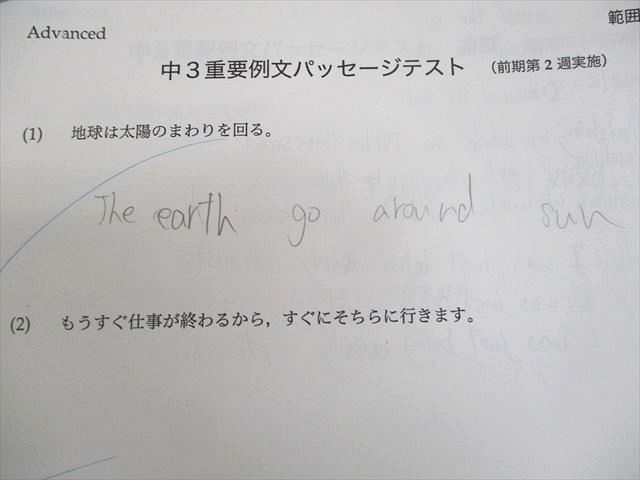 Advanced
範囲
中3重要例文パッセージテスト (前期第2週実施)
(1) 地球は太陽のまわりを回る。
The earth go around sun
(2) もうすぐ仕事が終わるから,すぐにそちらに行きます。